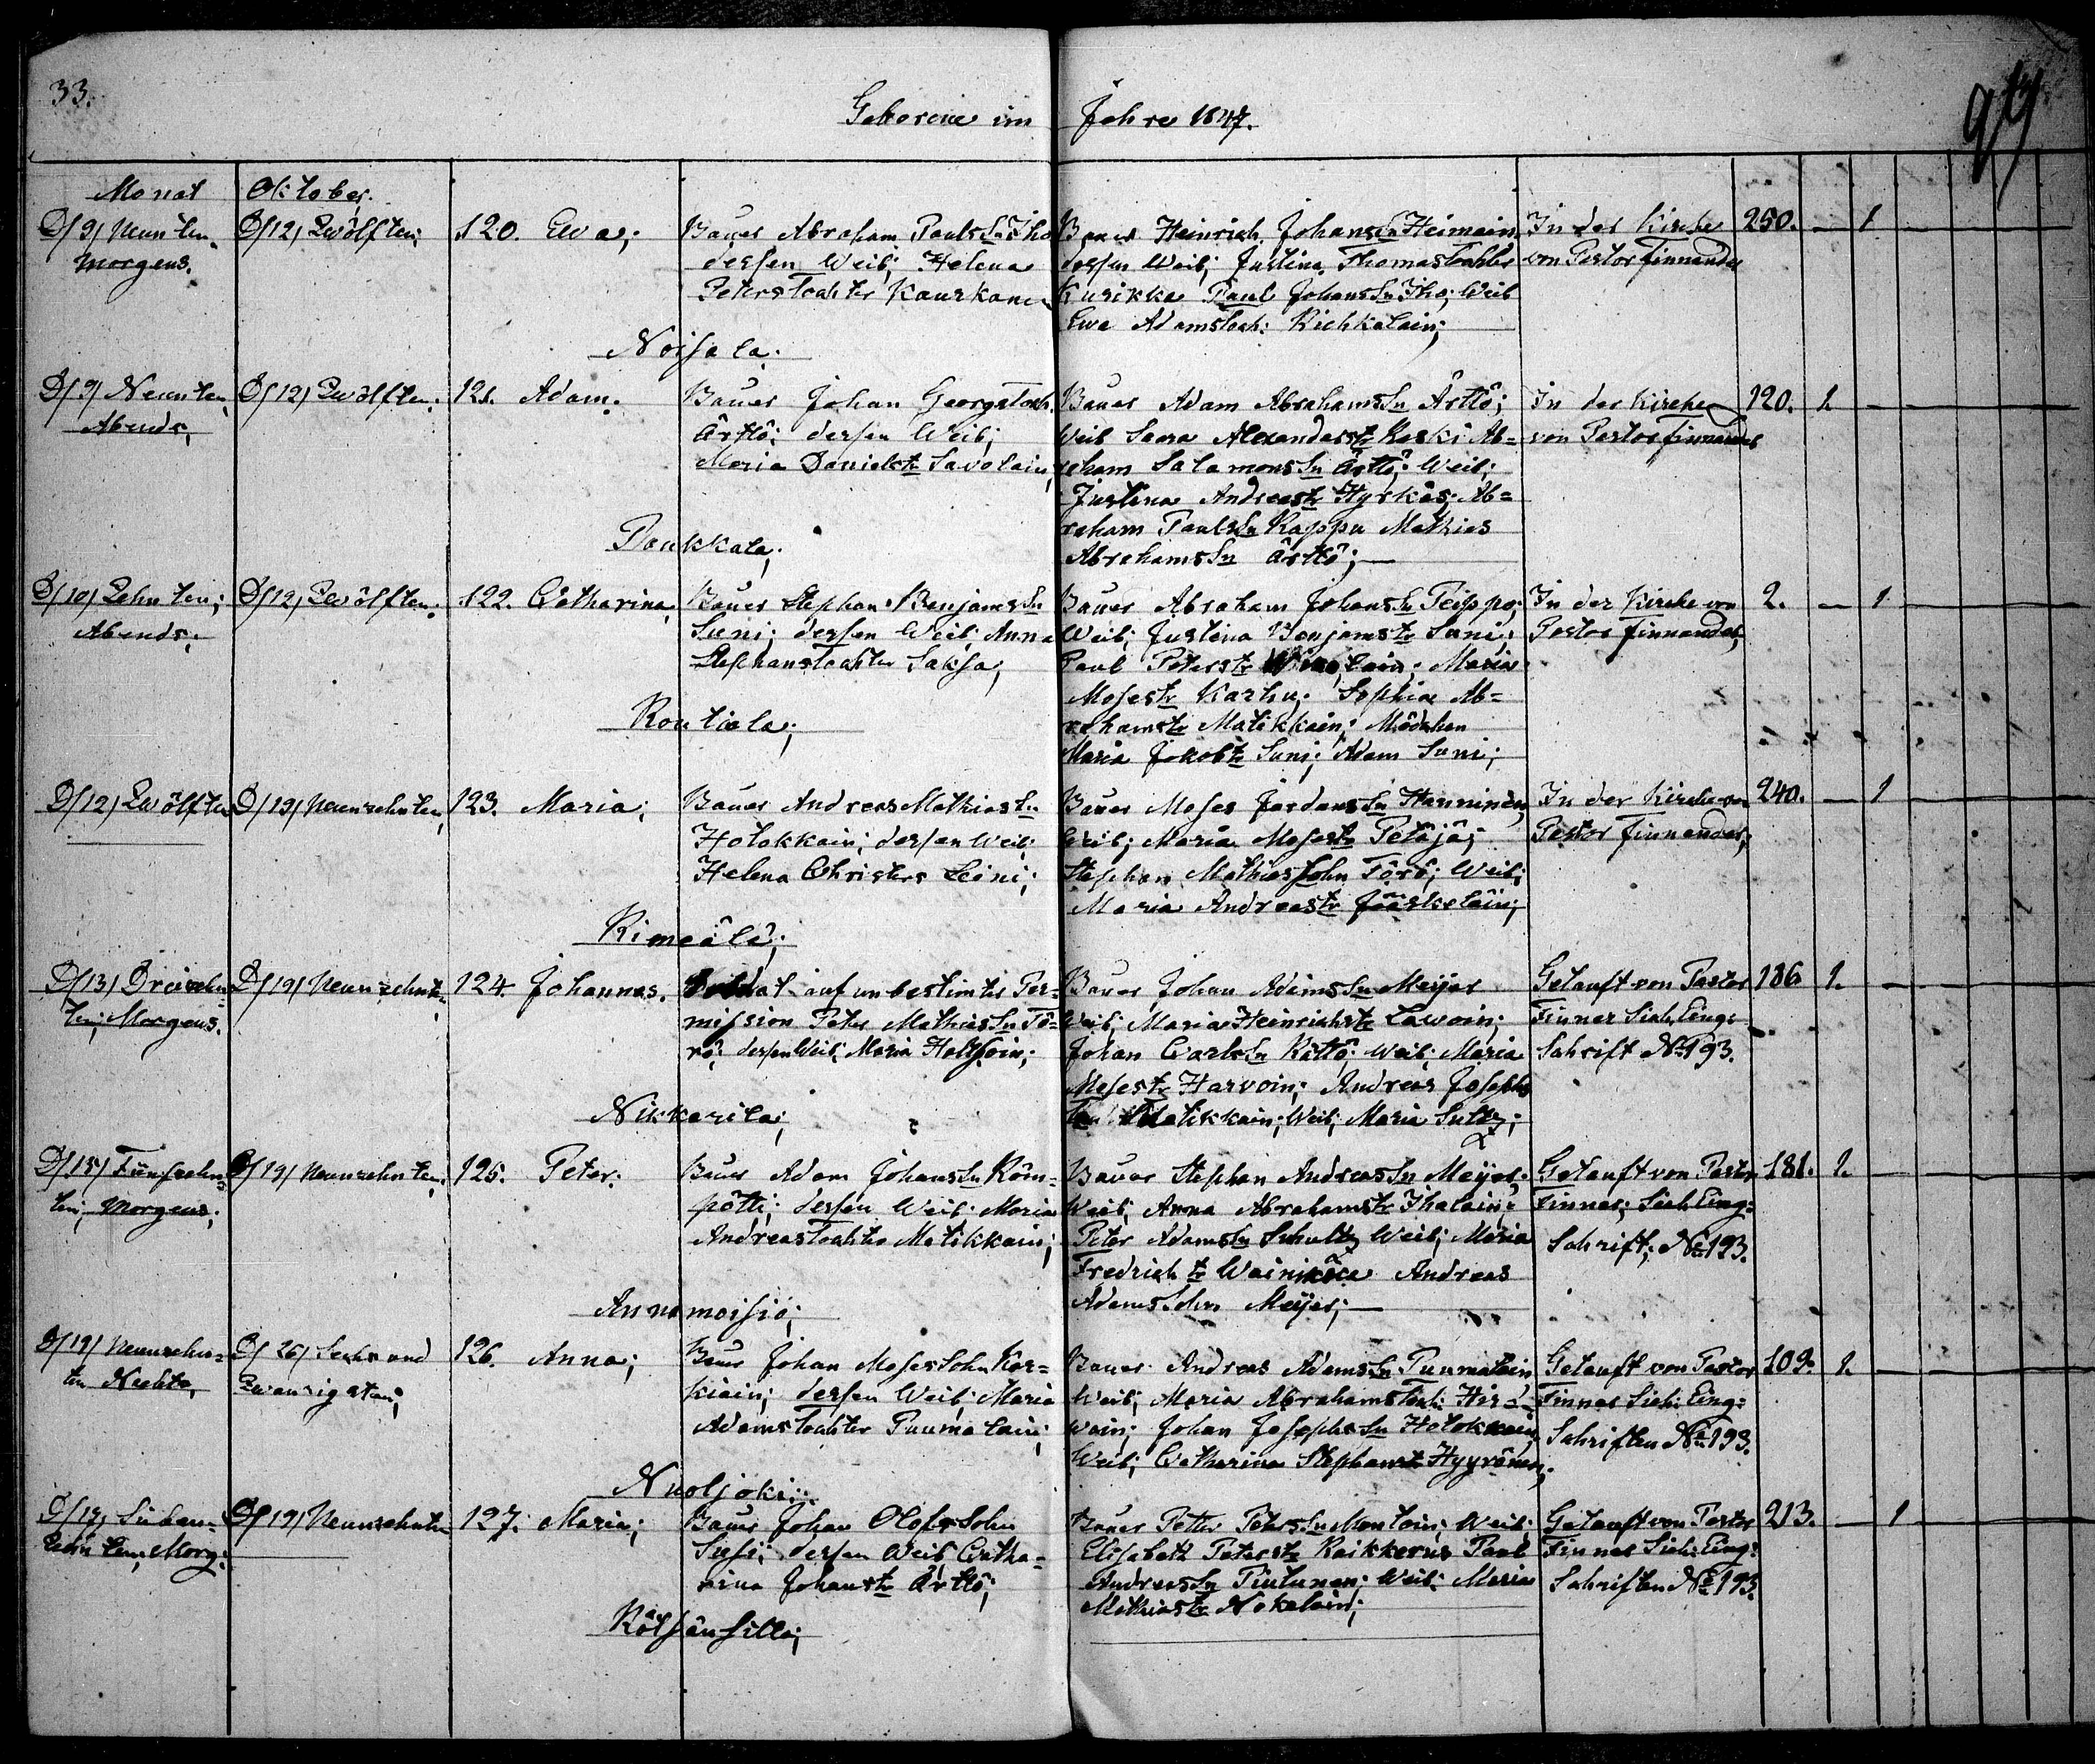 33.
Geborene im Jahre 1847.
Monat Oktober.
D/9/ Neunten D/12/ Zwölften; 120. Eva; Bauer Abraham PaulsSn Iho
Morgens. dessen Weib; Helena
Peterstochter Kaurkane
Bauer Heinrich JohansSn Heimain
dessen Weib; Justina Thomastochter
Kurikka Paul JohansSn Iho; Weib
Ewa Adamstoch: Kichkalain;
In der Kirche 250. — 1
von Pastor Finnander
Noisala.
D/9/ Neunten D/12/ Zwölften; 121. Adam. Bauer Johan GeorgsToch.
Abends, Ärttö; dessen Weib;
Maria Danielstr Savolain,
Bauer Adam AbrahamsSn Ärttö;
Weib Saara Alexanderstr Koski Ab=
raham SalamonsSn Ärttö; Weib;
Justina Andreastr Hyrkäs; Ab=
raham PaulsSn Kappu Mathias
AbrahamsSn Ärttö; —
In der Kirche 120. 1. —
von Pastor Finnander
Poukkala;
D/10/ Zehnten; D/12/ Zwölften; 122. Catharina, Bauer Stephan BenjamsSn
Abends; Suni; dessen Weib; Anna
Stephanstochter Saksa;
Bauer Abraham JohansSn Peippo;
Weib; Justina Benjamstr Suni;
Paul Peterstr Maria
Mosestr Karhu; Sophia Ab=
rahamstr Matikkain; Mädchen
Maria Jakobtr Suni; Adam Suni;
In der Kirche von 2. — 1
Pastor Finnander,
Routiala;
D/12/ Zwölften D/19/ Neunzehnten, 123. Maria; Bauer Andreas MathiasSn
Holokkain; dessen Weib;
Helena Christers Leini;
Bauer Moses JordansSn Hanninen,
Weib; Maria Mosestr Petäjä;
Stephan MathiasSohn Törö; Weib;
Maria Andreastr Jääskeläin;
In der Kirche von 240. — 1
Pastor Finnander;
Rimeälä;
D/13/ Dreizehn= D/19/ Neunzehnten, 124. Johannes. Soldat auf unbestimter Per=
ten; Morgens. mission Peter MathiasSn Tö=
rö; dessen Weib; Maria
Bauer Johan AdamsSn Meijer
Weib; Maria Heinrichstr Lawoin;
Johan CarlsSn Rättö; Weib; Maria
Mosestr Harvoin; Andreas Josephs
Matikkain; Weib; Maria
Getauft von Pastor 186. 1. —
Finner Sieh Eing=
Schrift No 193.
Nikkarila;
D/15/ Fünfzehn= D/19/ Neunzehnten; 125. Peter. Bauer Adam JohansSn Köm=
ten; Morgens; pötti; dessen Weib; Maria
Andreastochter Matikkain;
Bauer Stephan AndreasSn Meijer;
Weib; Anna Abrahamstr Ihalain;
Peter AdamsSn Schultz Weib; Maria
Fredrich tr Andreas
AdamsSohn Meijer; —
Getauft von Pastor 181. 1. —
Finner; Sieh Eing=
Schrift; No 193.
Annamoisio;
D/19/ Neunzehn= D/26/ Sechs und 126. Anna; Bauer Johan MosesSohn Kar=
ten Nachts, Zwanzigsten; kiain; dessen Weib; Maria
Adamstochter Puumalain;
Bauer Andreas AdamsSn Puumalain
Weib; Maria Abrahamstoch: Hir=
woin; Johan JosephsSn Holokkain
Weib; Catharina Stephanstr Hyyränen;
Getauft von Pastor 109. 1. —
Finner Sieh: Eing=
Schriften No 193.
Nuoljoki;
D/17/ Sieben= D/19/ Neunzehnten 127. Maria; Bauer Johan OlofsSohn
zehnten, Morg: Susi; dessen Weib Catha=
rina Johanstr Ärttö;
Bauer Peter PetersSn Montoin; Weib;
Elisabeth Peterstr Raikkerus Paul
AndreasSn Tintunen; Weib; Maria
Mathiastr Nokelain;
Getauft von Pastor 213. — 1
Finner Sieh: Eing=
Schriften No 193.
Rätsänsilla;